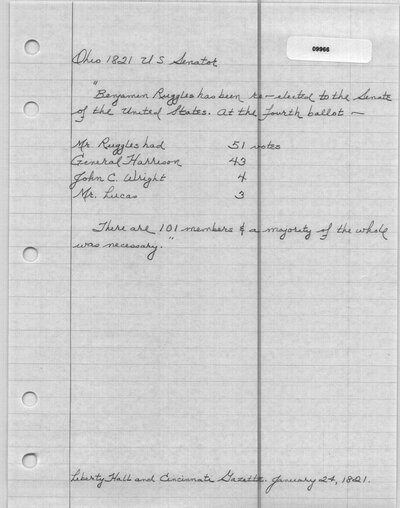 09966
Ohio 1821 U.S. Senator
"Benjamin Ruggles has been re-elected to the Senate
of the United States. At the fourth ballot —
Mr. Ruggles had 51 votes
General Harrison 43
John C. Wright 4
Mr. Lucas 3
There are 101 members & a majority of the whole
was necessary."
Liberty Hall and Cincinnati Gazette. January 24, 1821.